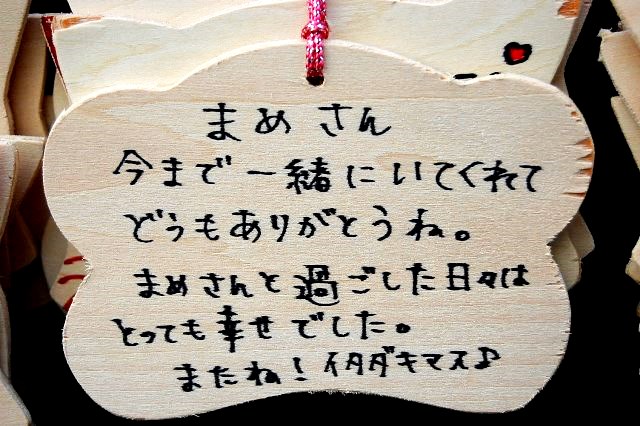 まめさん
今まで一緒にいてくれて
どうもありがとうね。
まめさんと過ごした日々は
とっても幸せでした。
またね!イタダキマス♪